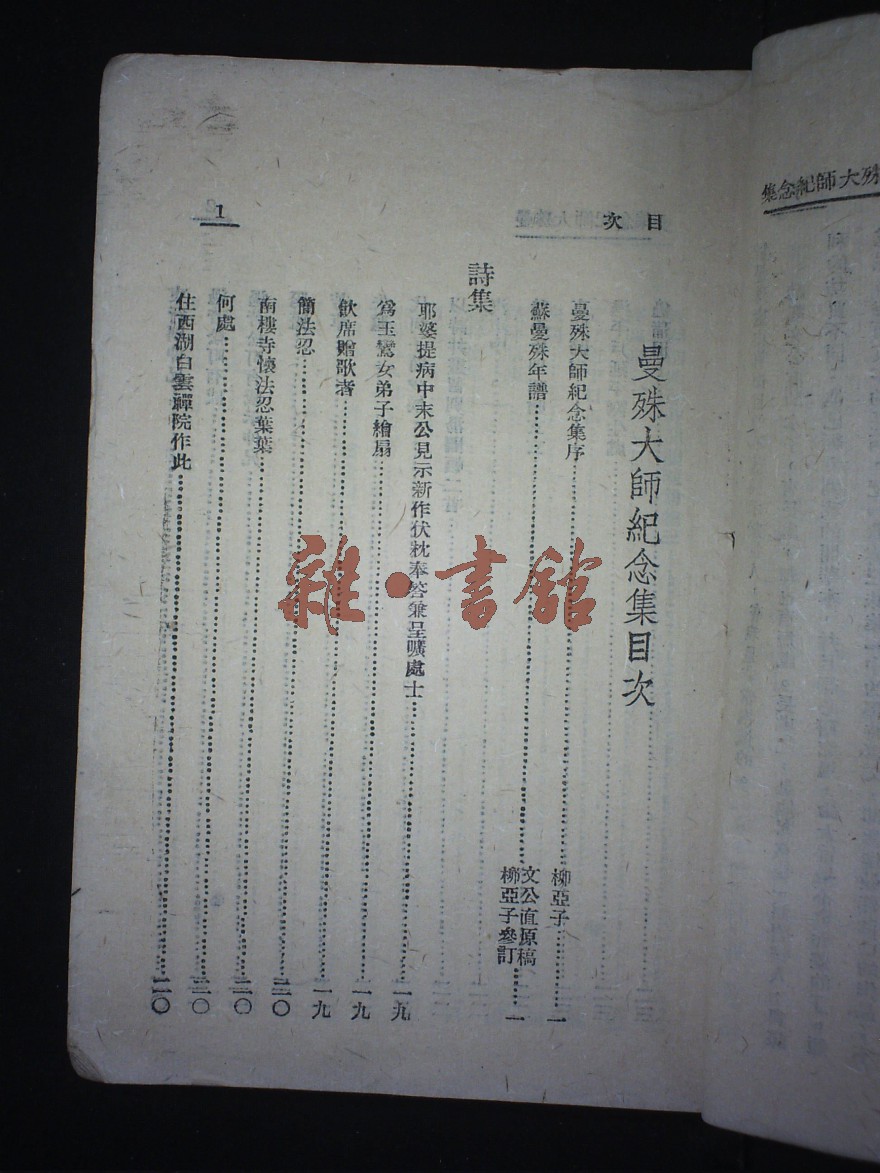 殊大師紀念集
目次
1
曼殊大師紀念集目次
曼殊大師紀念集序 柳亞子 一
蘇曼殊年譜 文公直原稿 柳亞子參訂 一
詩集
耶婆提病中末公見示新作伏枕奉答兼呈曠處士 一九
爲玉鸞女弟子繪扇 一九
飲席贈歌者 一九
簡法忍 二〇
南樓寺懷法忍葉葉 二〇
何處 二〇
住西湖白雲禪院作此 二〇
雜·書館